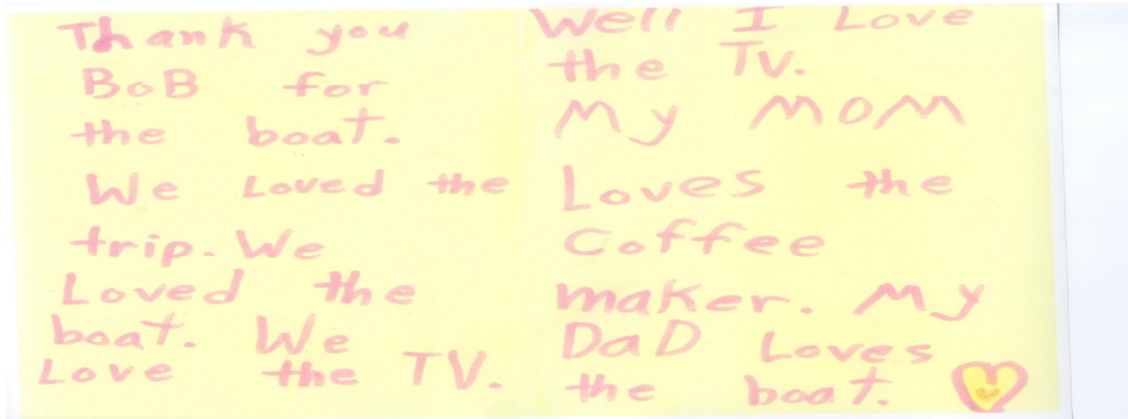 Thank you
BoB for
the boat.
We Loved the
trip. We
Loved the
boat. We
Love the TV.
Well I Love
the TV.
My MOM
Loves the
Coffee
maker. My
DaD Loves
the boat.